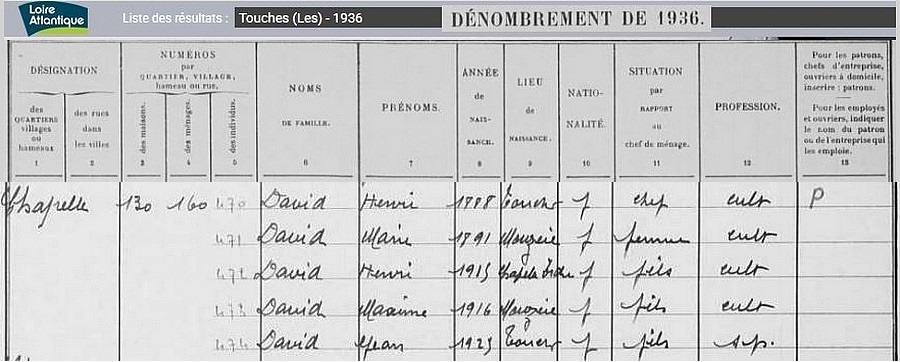 Loire
Atlantique
Liste des résultats : Touches (Les) - 1936
DÉNOMBREMENT DE 1936.
DÉSIGNATION
des QUARTIERS villages ou hameaux
1
des rues dans les villes
2
NUMÉROS par QUARTIER, VILLAGE, hameau ou rue.
des maisons.
3
des ménages.
4
des individus.
5
NOMS DE FAMILLE.
6
PRÉNOMS.
7
ANNÉE de NAISSANCE.
8
LIEU de NAISSANCE.
9
NATIONALITÉ.
10
SITUATION par RAPPORT au chef de ménage.
11
PROFESSION.
12
Pour les patrons, chefs d'entreprise, ouvriers à domicile, inscrire : patrons.
Pour les employés et ouvriers, indiquer le nom du patron ou de l'entreprise qui les emploie.
13
Chapelle 130 160 470 David Henri 1888 Touches f chef cult P
471 David Marie 1891 Mouzeil f femme cult
472 David Henri 1915 Chapelle Erdre f fils cult
473 David Maxime 1916 Mouzeil f fils cult
474 David Jean 1925 Touches f fils s.p.